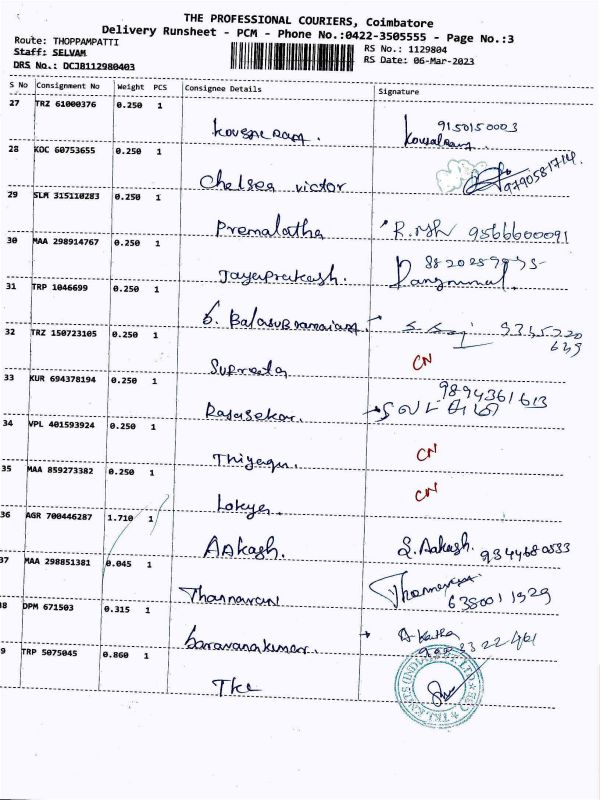 THE PROFESSIONAL COURIERS, Coimbatore
Delivery Runsheet - PCM - Phone No.:0422-3505555 - Page No.:3
Route: THOPPAMPATTI
Staff: SELVAM
DRS No.: DCJB112980403
RS No.: 1129804
RS Date: 06-Mar-2023
S No Consignment No Weight PCS Consignee Details Signature
27 TRZ 61000376 0.250 1
9150150003
28 KOC 60753655 0.250 1
Chelsea victor 9790581714.
29 SLM 315110283 0.250 1
Premalatha 9566600091
30 MAA 298914767 0.250 1
Jayaprakash.
31 TRP 1046699 0.250 1
32 TRZ 150723105 0.250 1
CN
33 KUR 694378194 0.250 1
Rajasekar. 9894361613
34 VPL 401593924 0.250 1
Thiyagu. CN
35 MAA 859273382 0.250 1
CN
36 AGR 700446287 1.710 1
Aakash. S. Aakash. 9344680533
37 MAA 298851381 0.045 1
6380011929
38 DPM 671503 0.315 1
Saravanakumar.
39 TRP 5075045 0.860 1